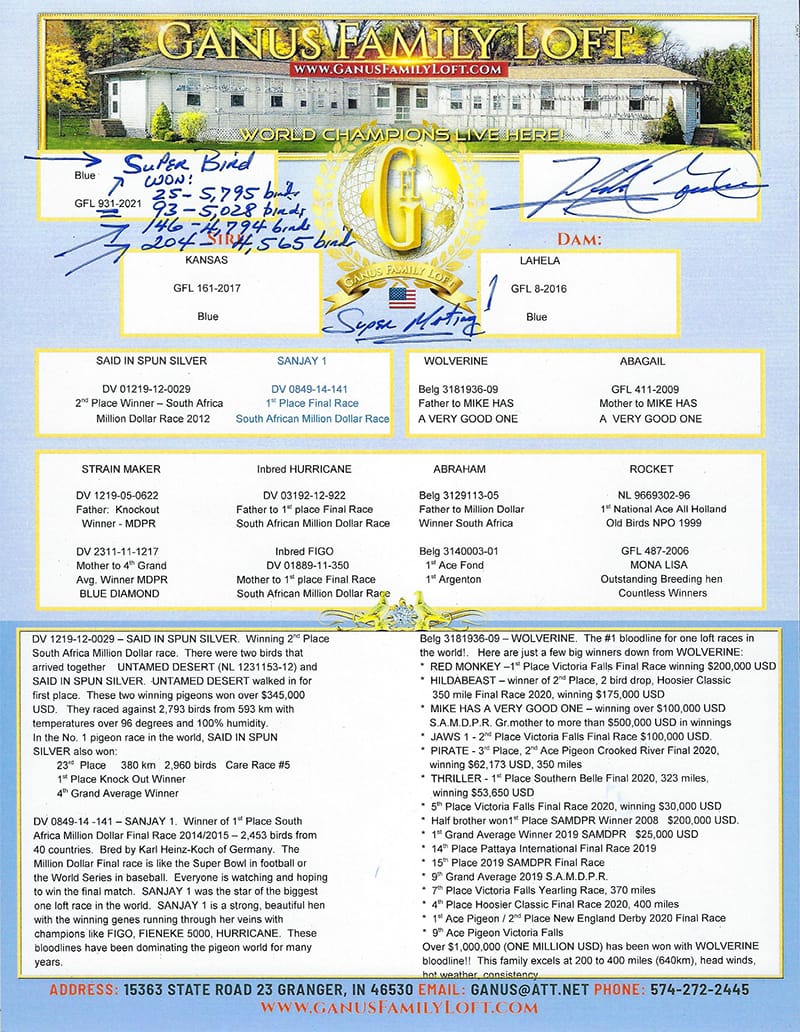 GANUS FAMILY LOFT
WWW.GANUSFAMILYLOFT.COM
WORLD CHAMPIONS LIVE HERE!
Blue
GFL 931-2021
SUPER BIRD
WON!
25 - 5,795 birds
93 - 5,028 birds
146 - 4,794 birds
204 - 4,565 birds
GFL
GANUS FAMILY LOFT
SIRE:
KANSAS
GFL 161-2017
Blue
Super Mating!
DAM:
LAHELA
GFL 8-2016
Blue
SAID IN SPUN SILVER
DV 01219-12-0029
2nd Place Winner – South Africa
Million Dollar Race 2012
SANJAY 1
DV 0849-14-141
1st Place Final Race
South African Million Dollar Race
WOLVERINE
Belg 3181936-09
Father to MIKE HAS
A VERY GOOD ONE
ABAGAIL
GFL 411-2009
Mother to MIKE HAS
A VERY GOOD ONE
STRAIN MAKER
DV 1219-05-0622
Father: Knockout
Winner - MDPR
DV 2311-11-1217
Mother to 4th Grand
Avg. Winner MDPR
BLUE DIAMOND
Inbred HURRICANE
DV 03192-12-922
Father to 1st place Final Race
South African Million Dollar Race
Inbred FIGO
DV 01889-11-350
Mother to 1st place Final Race
South African Million Dollar Race
ABRAHAM
Belg 3129113-05
Father to Million Dollar
Winner South Africa
Belg 3140003-01
1st Ace Fond
1st Argenton
ROCKET
NL 9669302-96
1st National Ace All Holland
Old Birds NPO 1999
GFL 487-2006
MONA LISA
Outstanding Breeding hen
Countless Winners
DV 1219-12-0029 – SAID IN SPUN SILVER. Winning 2nd Place
South Africa Million Dollar race. There were two birds that
arrived together UNTAMED DESERT (NL 1231153-12) and
SAID IN SPUN SILVER. UNTAMED DESERT walked in for
first place. These two winning pigeons won over $345,000
USD. They raced against 2,793 birds from 593 km with
temperatures over 96 degrees and 100% humidity.
In the No. 1 pigeon race in the world, SAID IN SPUN
SILVER also won:
23rd Place 380 km 2,960 birds Care Race #5
1st Place Knock Out Winner
4th Grand Average Winner
DV 0849-14 -141 – SANJAY 1. Winner of 1st Place South
Africa Million Dollar Final Race 2014/2015 – 2,453 birds from
40 countries. Bred by Karl Heinz-Koch of Germany. The
Million Dollar Final race is like the Super Bowl in football or
the World Series in baseball. Everyone is watching and hoping
to win the final match. SANJAY 1 was the star of the biggest
one loft race in the world. SANJAY 1 is a strong, beautiful hen
with the winning genes running through her veins with
champions like FIGO, FIENEKE 5000, HURRICANE. These
bloodlines have been dominating the pigeon world for many
years.
Belg 3181936-09 – WOLVERINE. The #1 bloodline for one loft races in
the world!. Here are just a few big winners down from WOLVERINE:
* RED MONKEY –1st Place Victoria Falls Final Race winning $200,000 USD
* HILDABEAST – winner of 2nd Place, 2 bird drop, Hoosier Classic
350 mile Final Race 2020, winning $175,000 USD
* MIKE HAS A VERY GOOD ONE – winning over $100,000 USD
S.A.M.D.P.R. Gr.mother to more than $500,000 USD in winnings
* JAWS 1 - 2nd Place Victoria Falls Final Race $100,000 USD.
* PIRATE - 3rd Place, 2nd Ace Pigeon Crooked River Final 2020,
winning $62,173 USD, 350 miles
* THRILLER - 1st Place Southern Belle Final 2020, 323 miles,
winning $53,650 USD
* 5th Place Victoria Falls Final Race 2020, winning $30,000 USD
* Half brother won1st Place SAMDPR Winner 2008 $200,000 USD.
* 1st Grand Average Winner 2019 SAMDPR $25,000 USD
* 14th Place Pattaya International Final Race 2019
* 15th Place 2019 SAMDPR Final Race
* 9th Grand Average 2019 S.A.M.D.P.R.
* 7th Place Victoria Falls Yearling Race, 370 miles
* 4th Place Hoosier Classic Final 2020, 400 miles
* 1st Ace Pigeon / 2nd Place New England Derby 2020 Final Race
* 9th Ace Pigeon Victoria Falls
Over $1,000,000 (ONE MILLION USD) has been won with WOLVERINE
bloodline!! This family excels at 200 to 400 miles (640km), head winds,
hot weather, consistency.
ADDRESS: 15363 STATE ROAD 23 GRANGER, IN 46530 EMAIL: GANUS@ATT.NET PHONE: 574-272-2445
WWW.GANUSFAMILYLOFT.COM